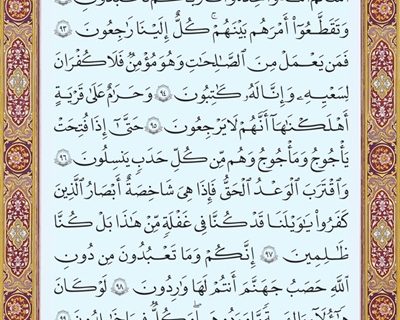 وَتَقَطَّعُوٓاْ أَمْرَهُم بَيْنَهُمْ ۖ كُلٌّ إِلَيْنَا رَٰجِعُونَ ٩٣
فَمَن يَعْمَلْ مِنَ ٱلصَّٰلِحَٰتِ وَهُوَ مُؤْمِنٌ فَلَا كُفْرَانَ
لِسَعْيِهِۦ وَإِنَّا لَهُۥ كَٰتِبُونَ ٩٤ وَحَرَٰمٌ عَلَىٰ قَرْيَةٍ
أَهْلَكْنَٰهَآ أَنَّهُمْ لَا يَرْجِعُونَ ٩٥ حَتَّىٰٓ إِذَا فُتِحَتْ
يَأْجُوجُ وَمَأْجُوجُ وَهُم مِّن كُلِّ حَدَبٍ يَنسِلُونَ ٩٦
وَٱقْتَرَبَ ٱلْوَعْدُ ٱلْحَقُّ فَإِذَا هِيَ شَٰخِصَةٌ أَبْصَٰرُ ٱلَّذِينَ
كَفَرُواْ يَٰوَيْلَنَا قَدْ كُنَّا فِي غَفْلَةٍ مِّنْ هَٰذَا بَلْ كُنَّا
ظَٰلِمِينَ ٩٧ إِنَّكُمْ وَمَا تَعْبُدُونَ مِن دُونِ
ٱللَّهِ حَصَبُ جَهَنَّمَ أَنتُمْ لَهَا وَٰرِدُونَ ٩٨ لَوْ كَانَ
هَٰٓؤُلَآءِ ءَالِهَةً مَّا وَرَدُوهَا ۖ وَكُلٌّ فِيهَا خَٰلِدُونَ ٩٩